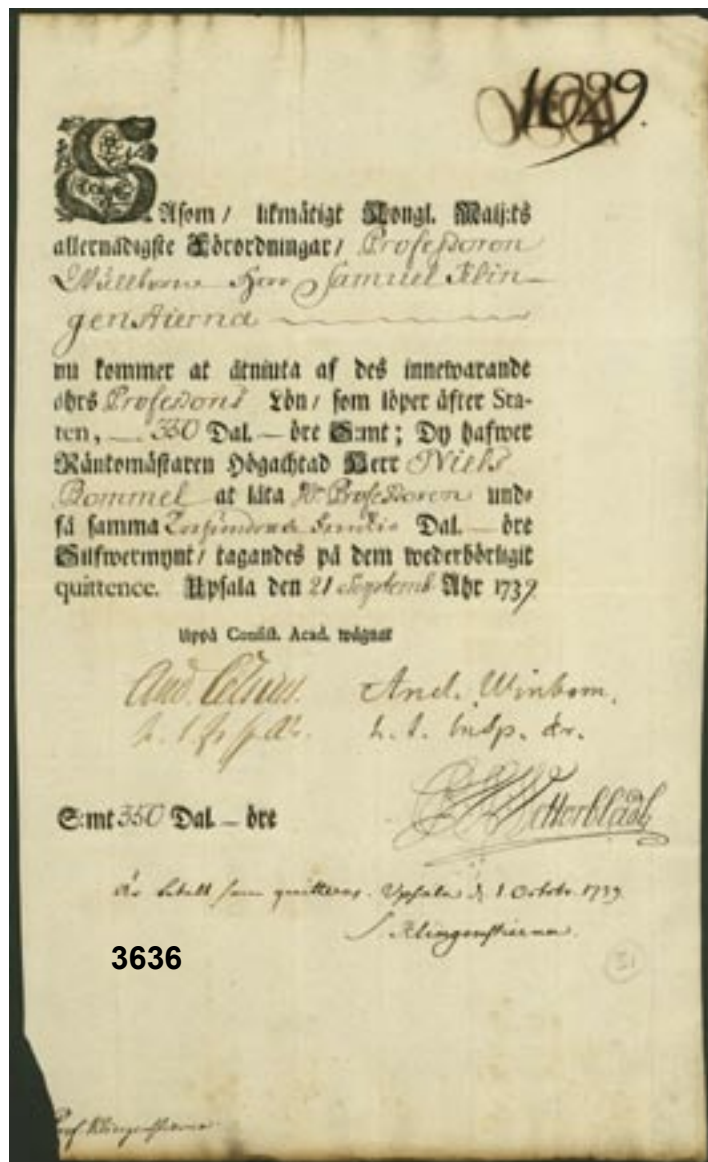 1029.
SÅsom / likmätigt Kongl. Maij:ts
allernådigste Förordningar / Professoren
Wällborne Herr Samuel Klin-
genstierna
nu kommer at åtniuta af des innewarande
åhrs Professors Lön / som löper äfter Sta-
ten, 350 Dal. — öre S:mt; Dy hafwer
Räntomästaren Högachtad Herr Niels
Bommel at låta Hr Professoren und-
få samma Trehundrade Femtio Dal. — öre
Silfwermynt / tagandes på dem wederbörligit
quittence. Upsala den 21 Septemb. Åhr 1739
Uppå Consist. Acad. wägnar
And. Celsius. And. Winbom.
h. t. Insp. ær.
S:mt 350 Dal. — öre
Wetterbladt
Är betalt som quitteras. Upsala d. 1 Octobr. 1739
S. Klingenstierna.
3636
31
Prof Klingenstierna